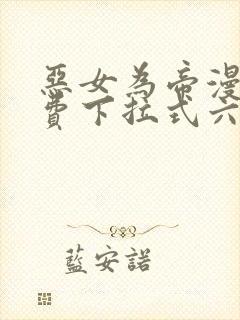 惡女為帝漫
費下拉式六
藍安諾